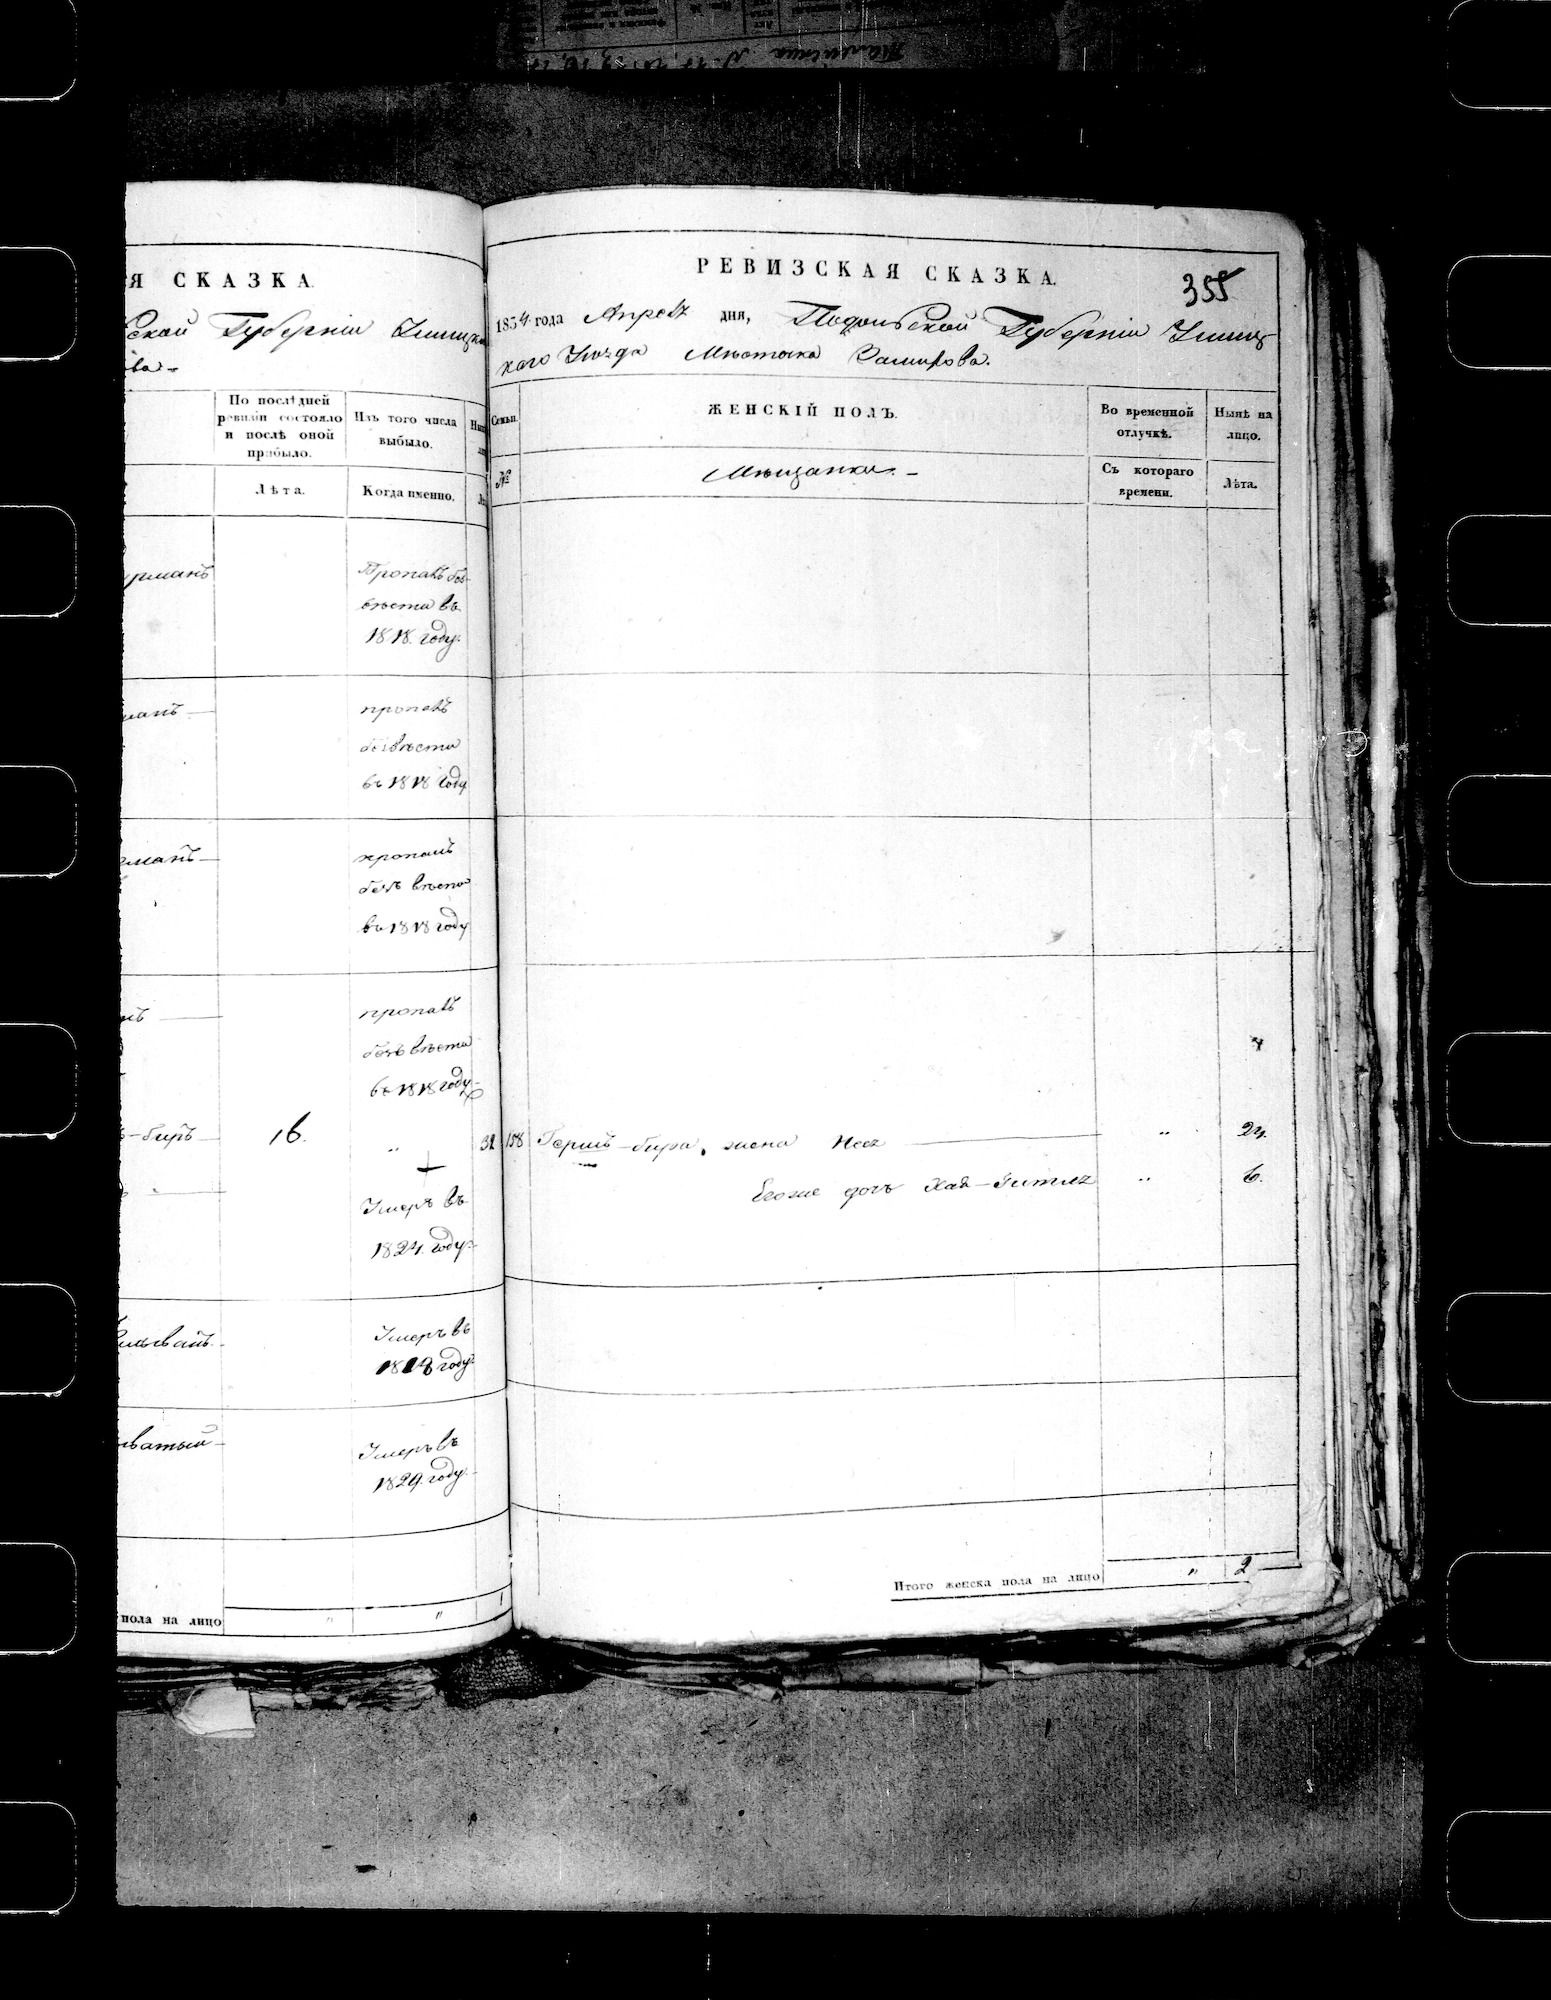 Я СКАЗКА.
ской Губерніи Ушицка
ва -
По послѣдней ревизіи состояло и послѣ оной прибыло.
Изъ того числа выбыло.
Лѣта.
Когда именно.
урманъ
Пропалъ без-
вѣсти въ
1818. году.
манъ
пропалъ
безвѣсти
въ 1818 году
рманъ
пропалъ
безъ вѣсти
въ 1818 году
пропалъ
безъ вѣсти
въ 1818 году
-биръ 16. „ 32
Умеръ въ
1824. году.
Умеръ въ
году.
ватый
Умеръ въ
1829. году.
пола на лицо „ „ 1
РЕВИЗСКАЯ СКАЗКА.
355
1834 года Апреля дня, Подольской Губерніи Ушиц
каго Уѣзда Мѣстечка Замихова.
Семьи.
ЖЕНСКІЙ ПОЛЪ.
Во временной отлучкѣ.
Нынѣ на лицо.
№
Мѣщанки. -
Съ котораго времени.
Лѣта.
158 Гершъ-бира, жена Неся „ 24.
Егоже дочь Хая-Гитля „ 6.
Итого женска пола на лицо „ 2